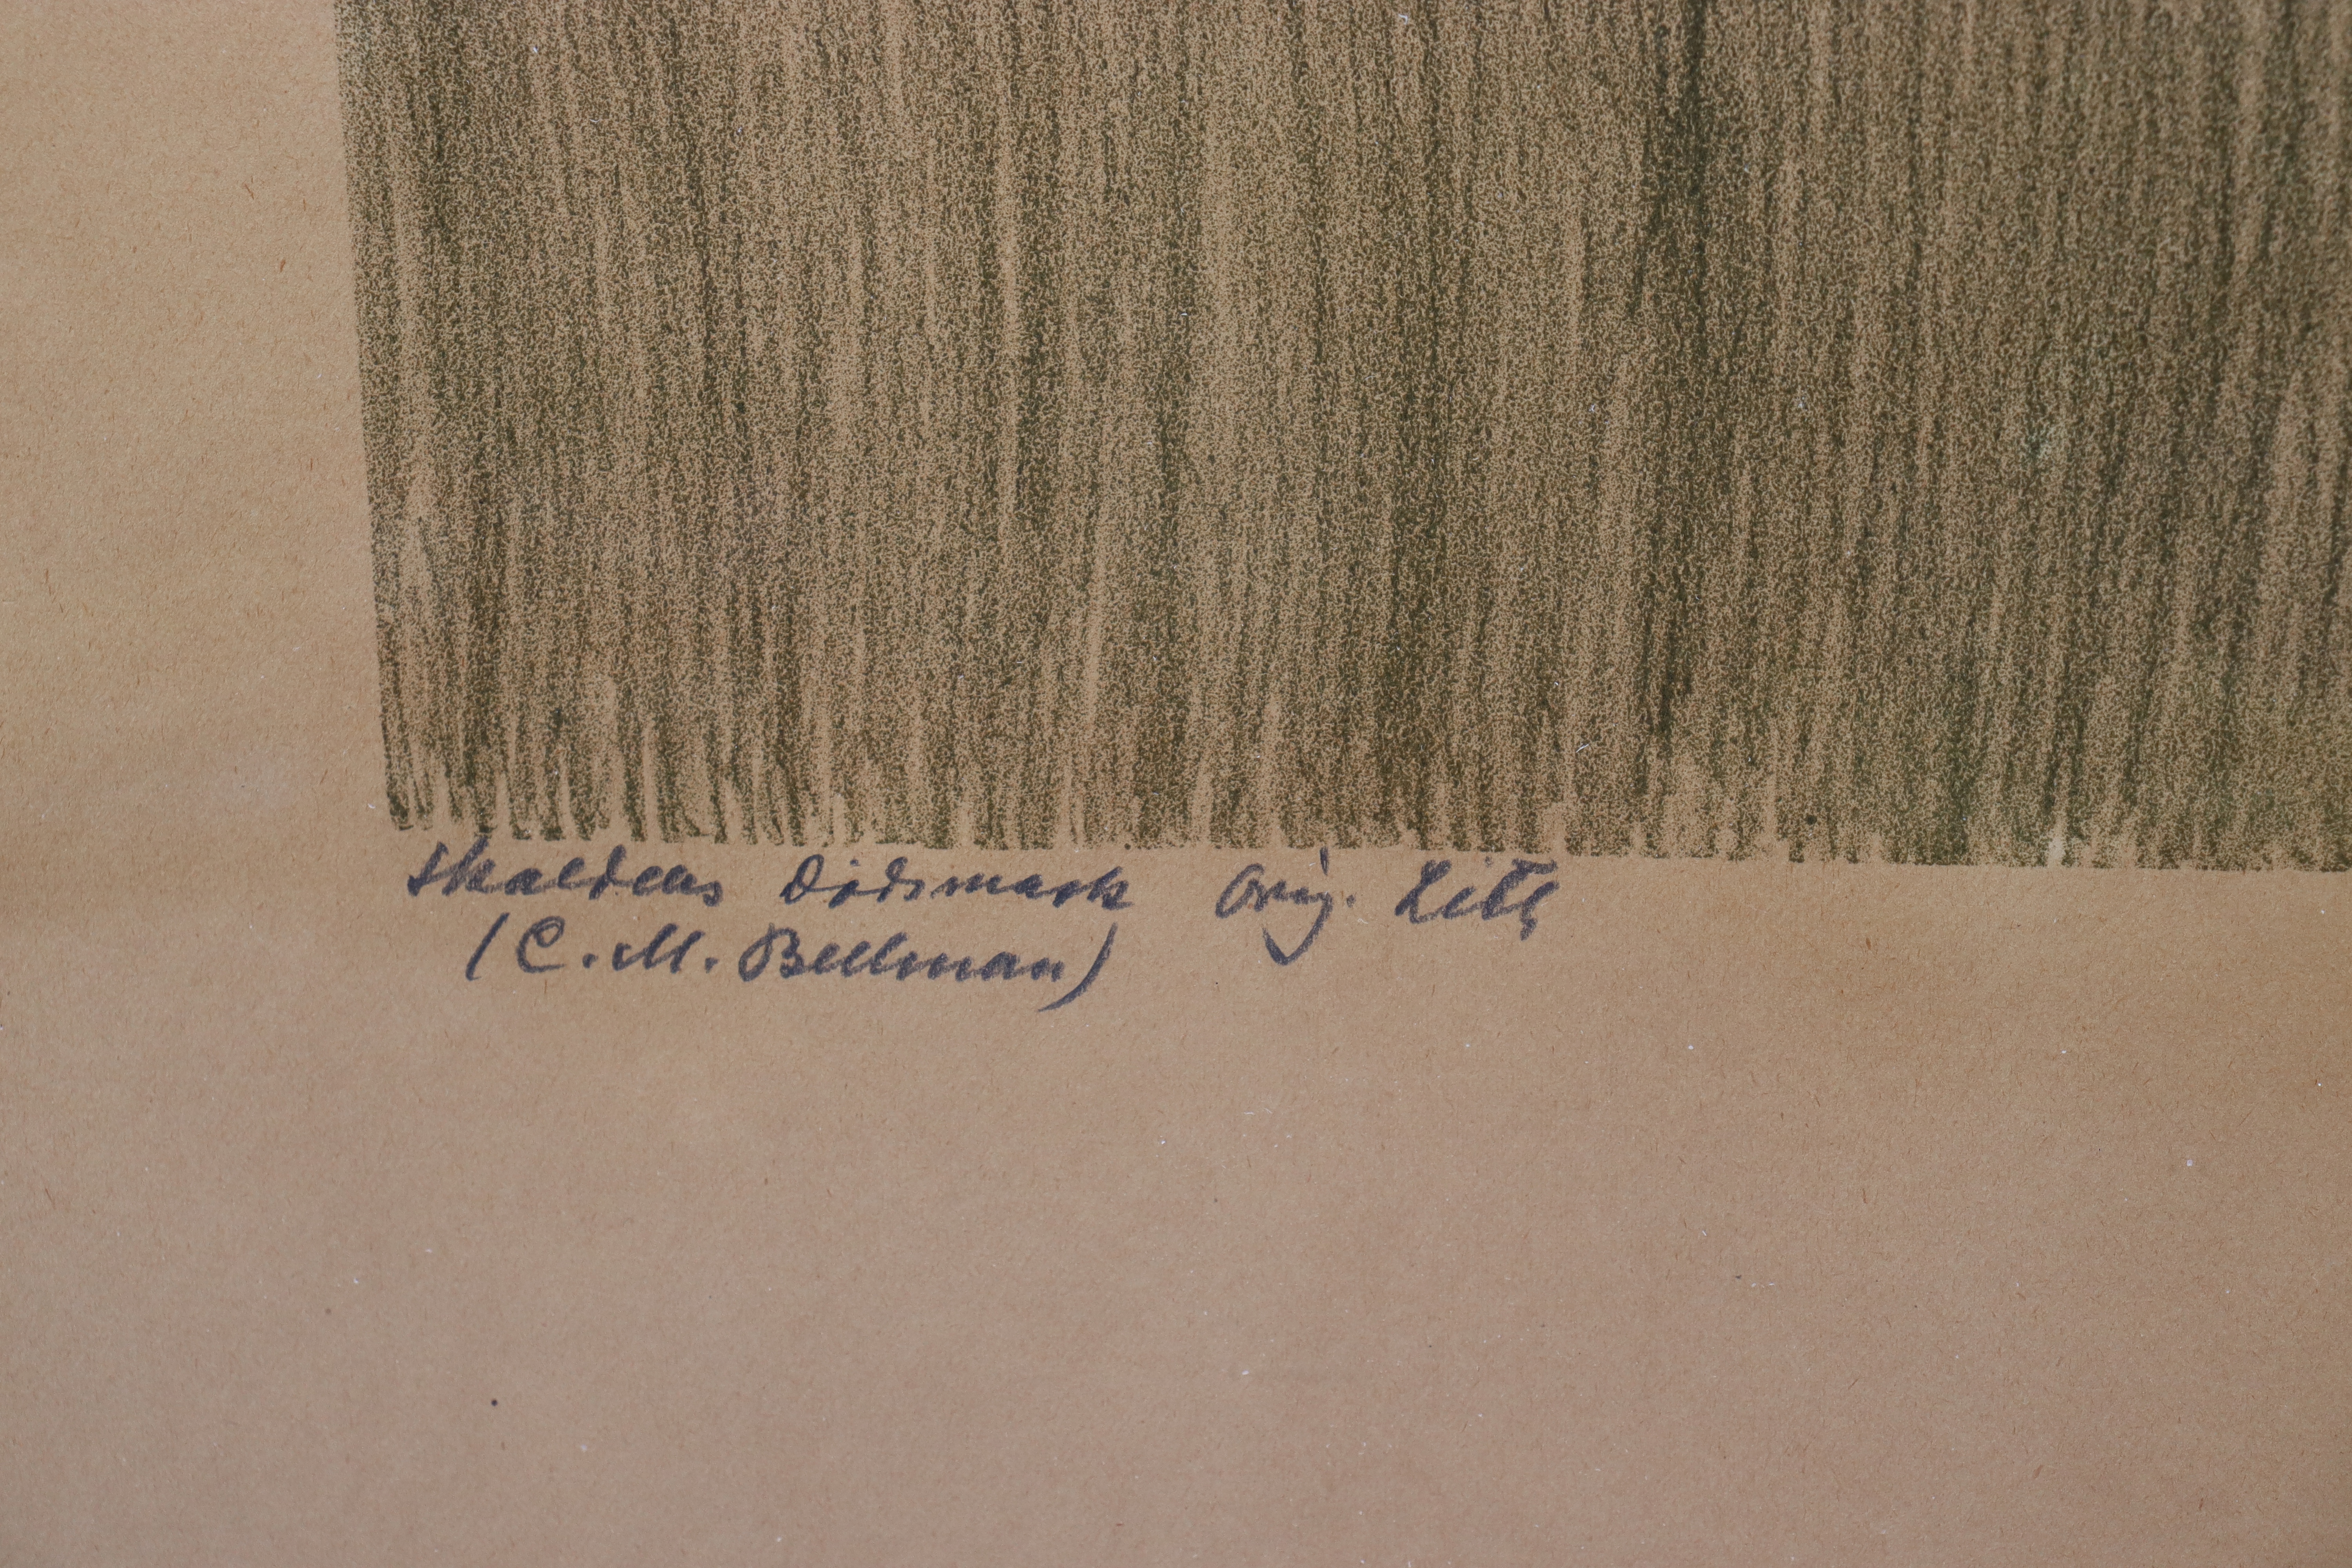 Skaldens Dödsmask Orig. Lith
(C. M. Bellman)